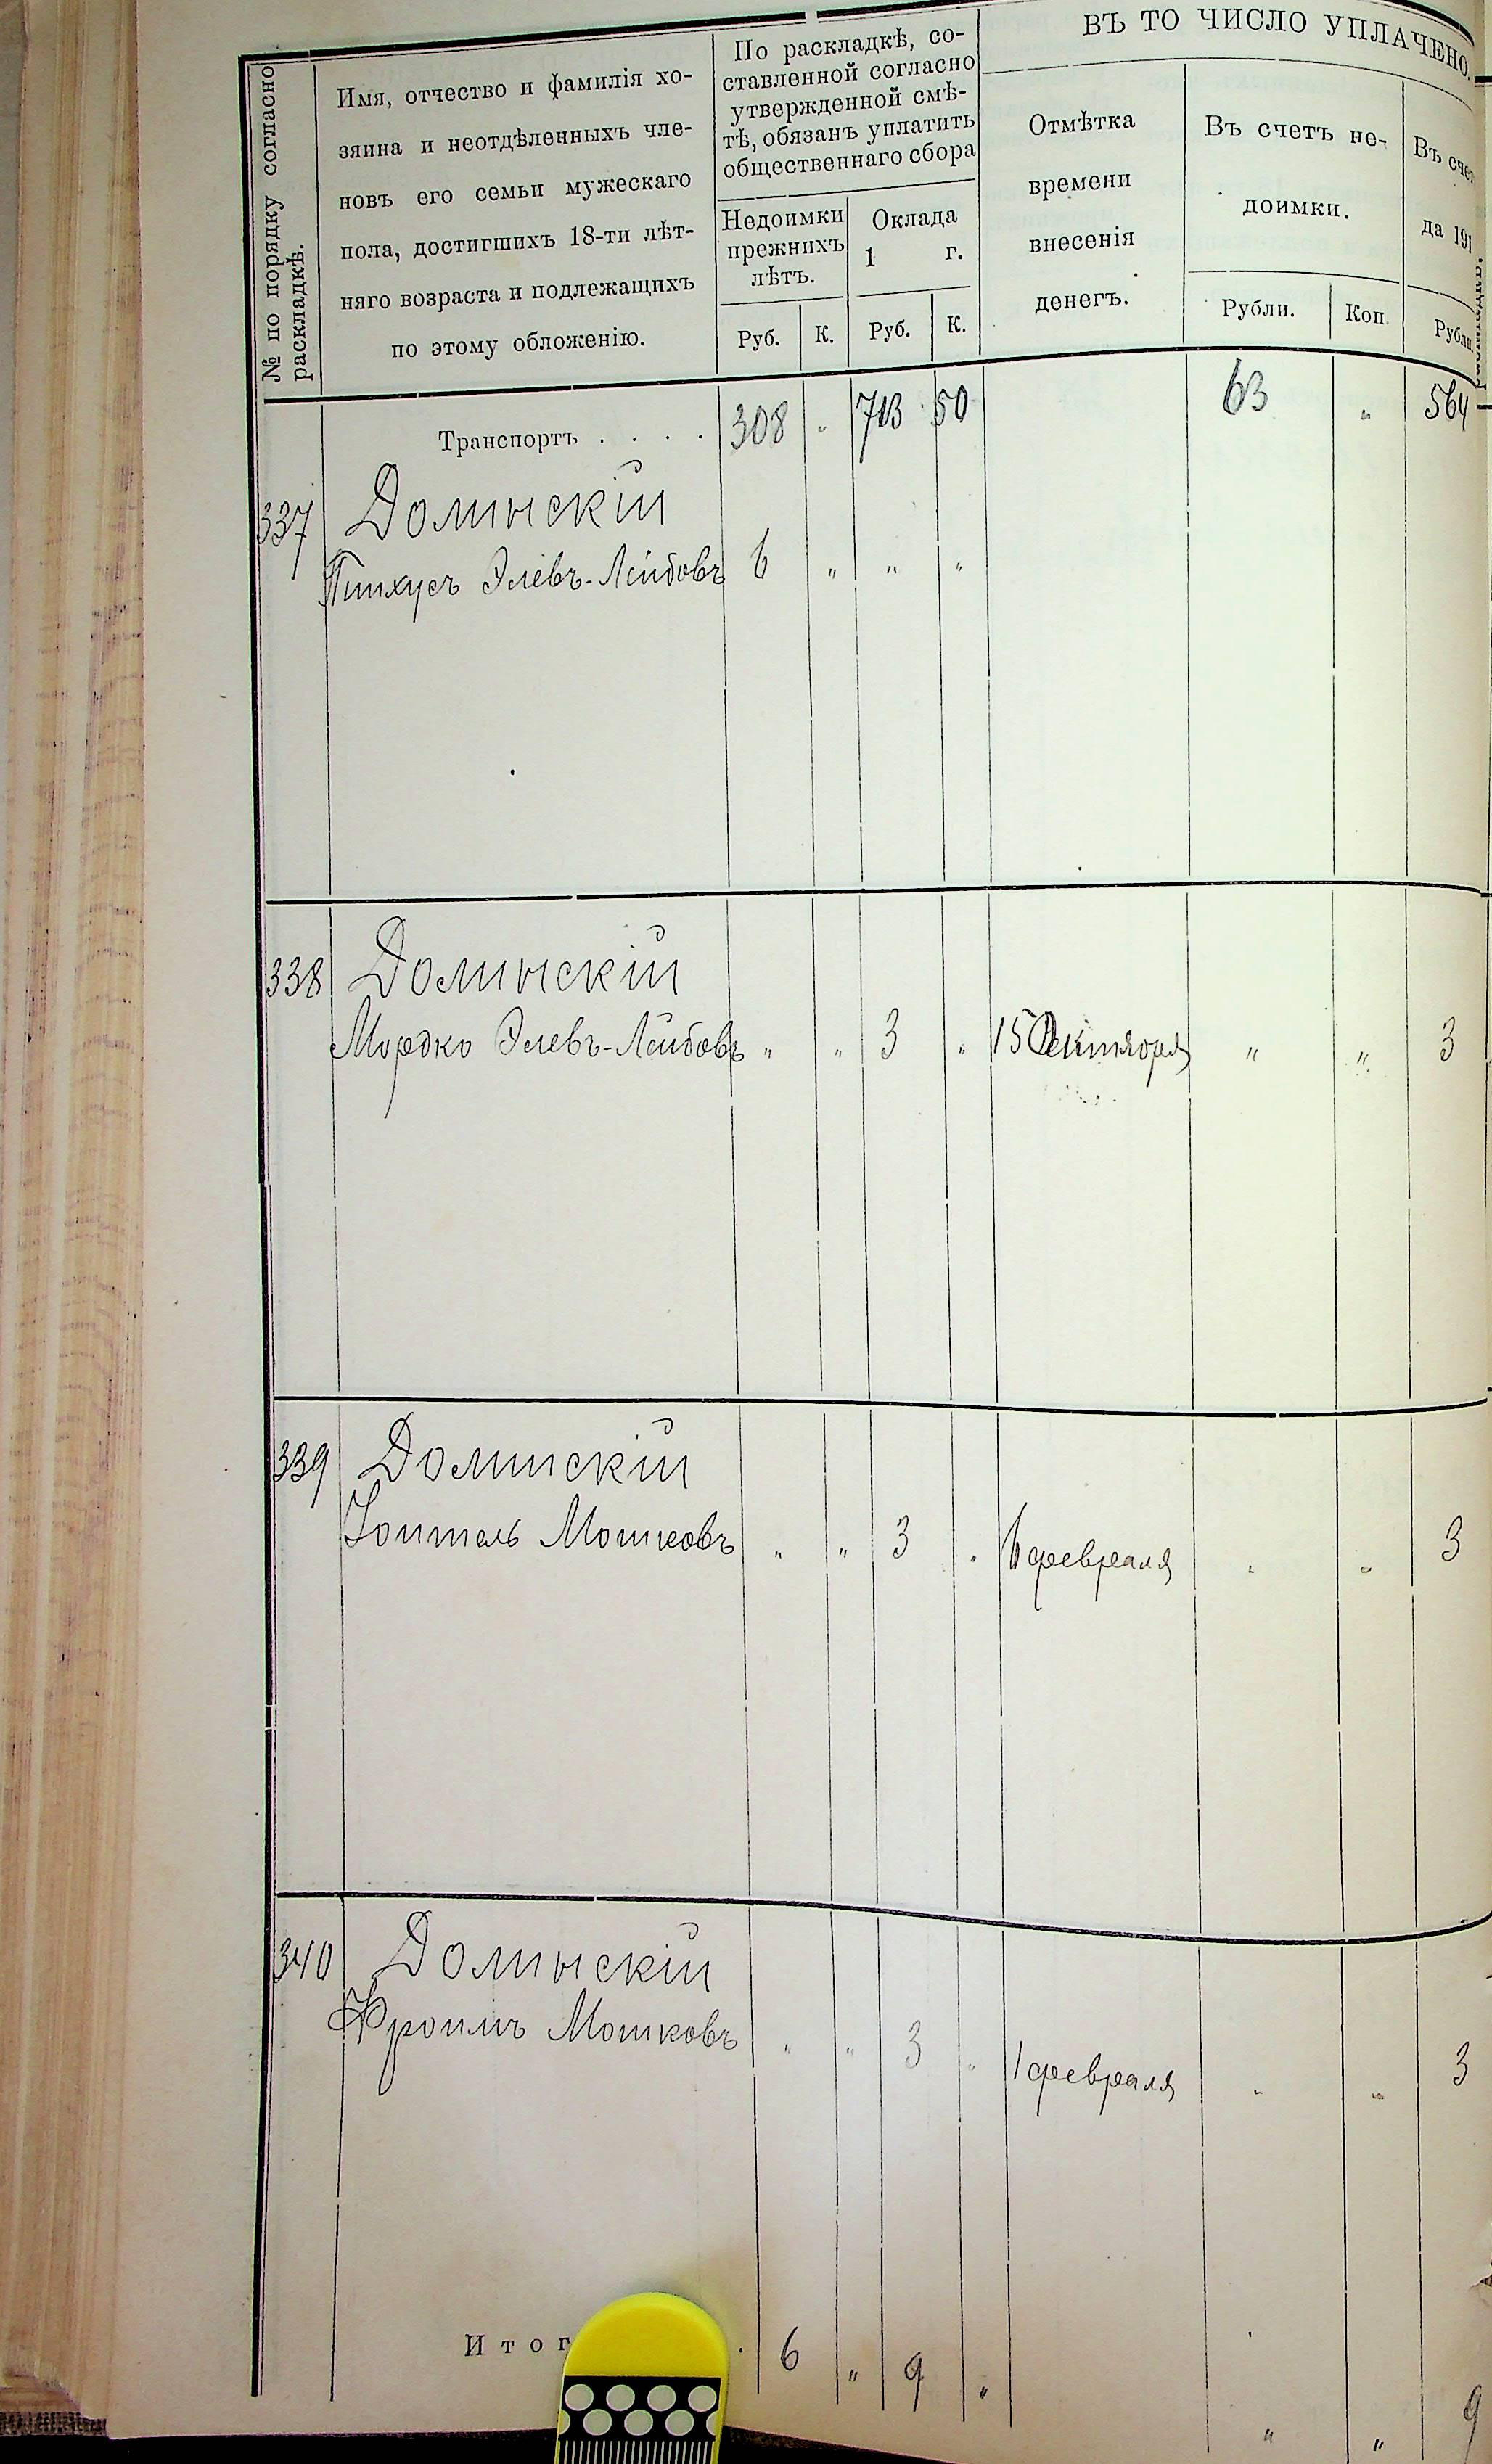 № по порядку согласно
раскладкѣ.
Имя, отчество и фамилія хо-
зяина и неотдѣленныхъ чле-
новъ его семьи мужескаго
пола, достигшихъ 18-ти лѣт-
няго возраста и подлежащихъ
по этому обложенію.
По раскладкѣ, со-
ставленной согласно
утвержденной смѣ-
тѣ, обязанъ уплатить
общественнаго сбора
Недоимки
прежнихъ
лѣтъ.
Оклада
1 г.
Руб. К. Руб. К.
ВЪ ТО ЧИСЛО УПЛАЧЕНО.
Отмѣтка
времени
внесенія
денегъ.
Въ счетъ не-
доимки.
Рубли. Коп.
Въ счет
да 191
Рубли
Транспортъ . . . . 308 „ 713 50 63 „ 564
337 Долинскій
Пинхусъ Элевъ-Лейбовъ 6 „ „ „
338 Долинскій
Мордко Элевъ-Лейбовъ „ „ 3 „ 15 Октября „ „ 3
339 Долинскій
Мошковъ „ „ 3 „ 6 февраля „ „ 3
340 Долинскій
Фроимъ Мошковъ „ „ 3 „ 1 февраля „ „ 3
Итог . 6 „ 9 „ „ „ 9